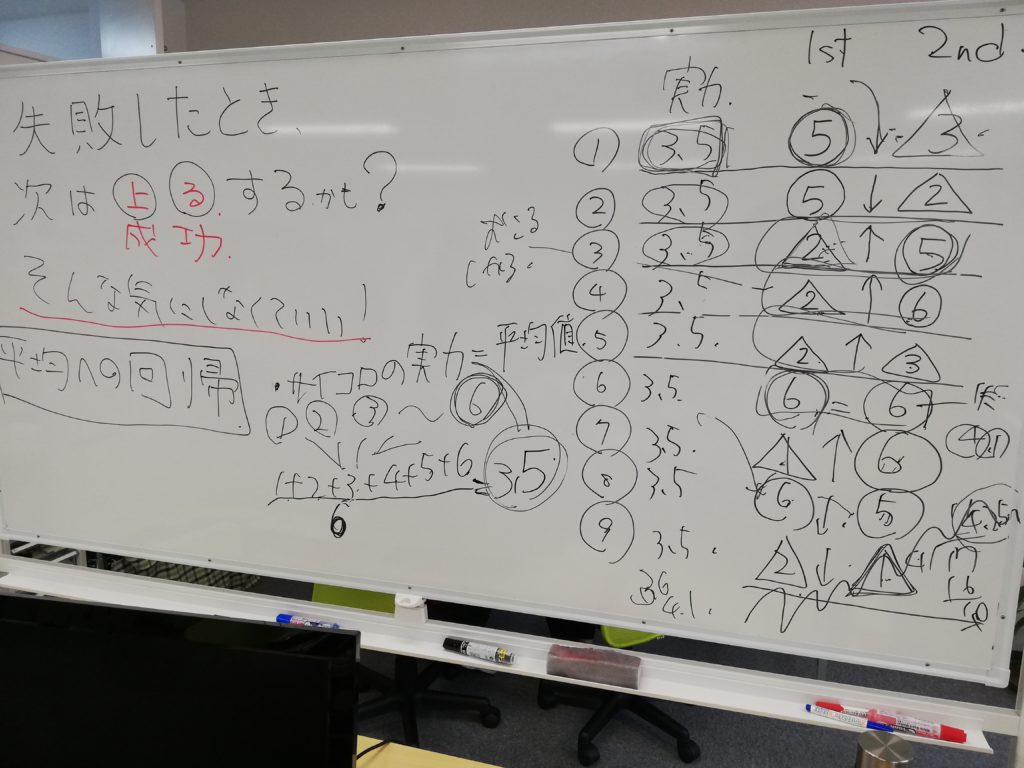 失敗したとき、
次は 上 る するかも?
成功.
そんな気にしなくていい!
平均への回帰
・サイコロの実力=平均値.
① ② ③ 〜 ⑥
1+2+3+4+5+6
6
= 3.5
1st 2nd
実力.
① 3.5 5 ↓ 3
② 3.5 5 ↓ 2
おこる
③ 3.5 2 ↑ 5
④ 3.5 2 ↑ 6
⑤ 3.5. 2 ↑ 3
⑥ 3.5 6 = 6
⑦ 3.5. 1 ↑ 6
⑧ 3.5 6 ↓ 5
⑨ 3.5. 2 ↓ 1